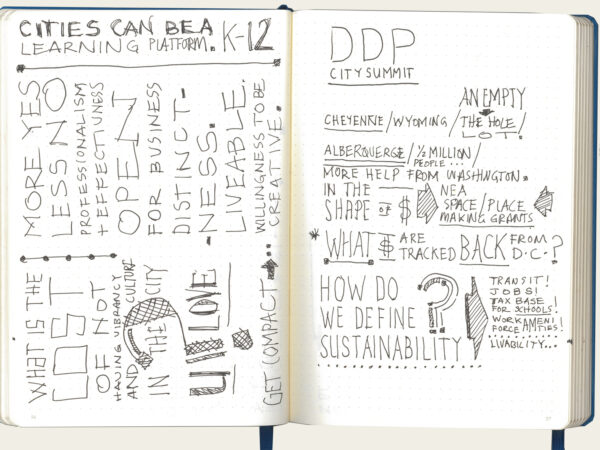 CITIES CAN BE A
LEARNING PLATFORM. K-12
MORE YES
LESS NO
PROFESSIONALISM
+ EFFECTIVNESS
OPEN
FOR BUSINESS
DISTINCT-
NESS.
LIVEABLE.
WILLINGNESS TO BE
CREATIVE.
WHAT IS THE
COST
OF NOT
HAVING VIBRANCY
AND CULTURE
IN THE CITY
?
LOVE
GET COMPACT
DDP
CITY SUMMIT
AN EMPTY
CHEYENNE/WYOMING/THE HOLE/
LOT.
ALBERQUERGE/½ MILLION/
PEOPLE...
MORE HELP FROM WASHINGTON.
IN THE
SHAPE OF $
NEA
SPACE/PLACE
MAKING GRANTS
*WHAT $ ARE
TRACKED BACK FROM
D.C.?
HOW DO
WE DEFINE
SUSTAINABILITY
?
TRANSIT!
JOBS!
TAX BASE
FOR SCHOOLS!
WORK AMENI
FORCE AMITIES!
LIVABILITY...
27